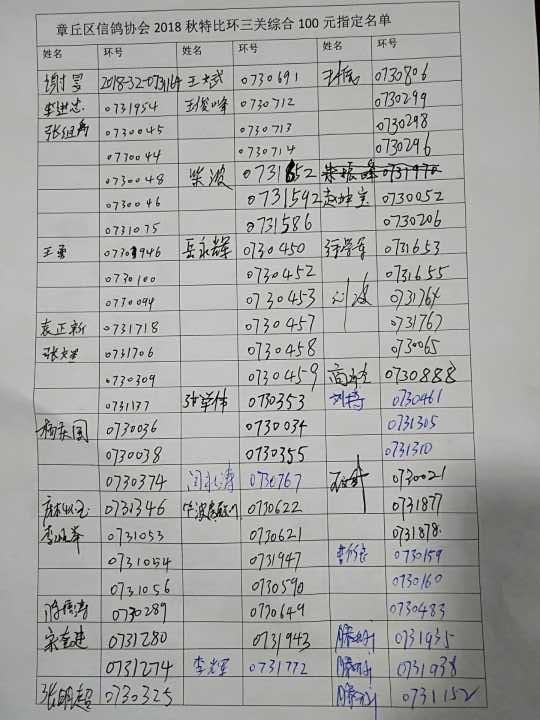 章丘区信鸽协会2018秋特比环三关综合100元指定名单
姓名 环号 姓名 环号 姓名 环号
谢昱 2018-32-0731164 王大武 0730691 0730806
李进忠 0731954 王俊峰 0730712 0730299
0730045 0730713 0730298
0730044 0730714 0730296
0730048 柴波 0731552
0730046 0731592 赵坤宝 0730052
0731075 0731586 0730206
王勇 岳永辉 0730450 徐学军 0731653
0730100 0730452 0731655
0730094 0730453 0731764
袁正新 0731718 0730457 0731767
0731706 0730458 0730065
0730309 0730459 0730888
0731137 0730353 刘特 0730461
杨庆国 0730036 0730034 0731305
0730038 0730355 0731310
0730374 闫永涛 0730767 0730021
0731346 0730622 0731877
0731053 0730621 0731878
0731054 0731947 0730159
0731056 0730590 0730160
0730289 0730649 0730483
宋奎建 0731280 0731943 0731935
0731274 李辉 0731772 0731938
张明超 0730325 0731152